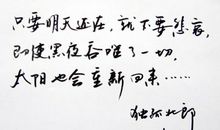 只要明天还在,就不要悲哀,
即使黑夜吞噬了一切,
太阳也会重新回来……
独孤九郎